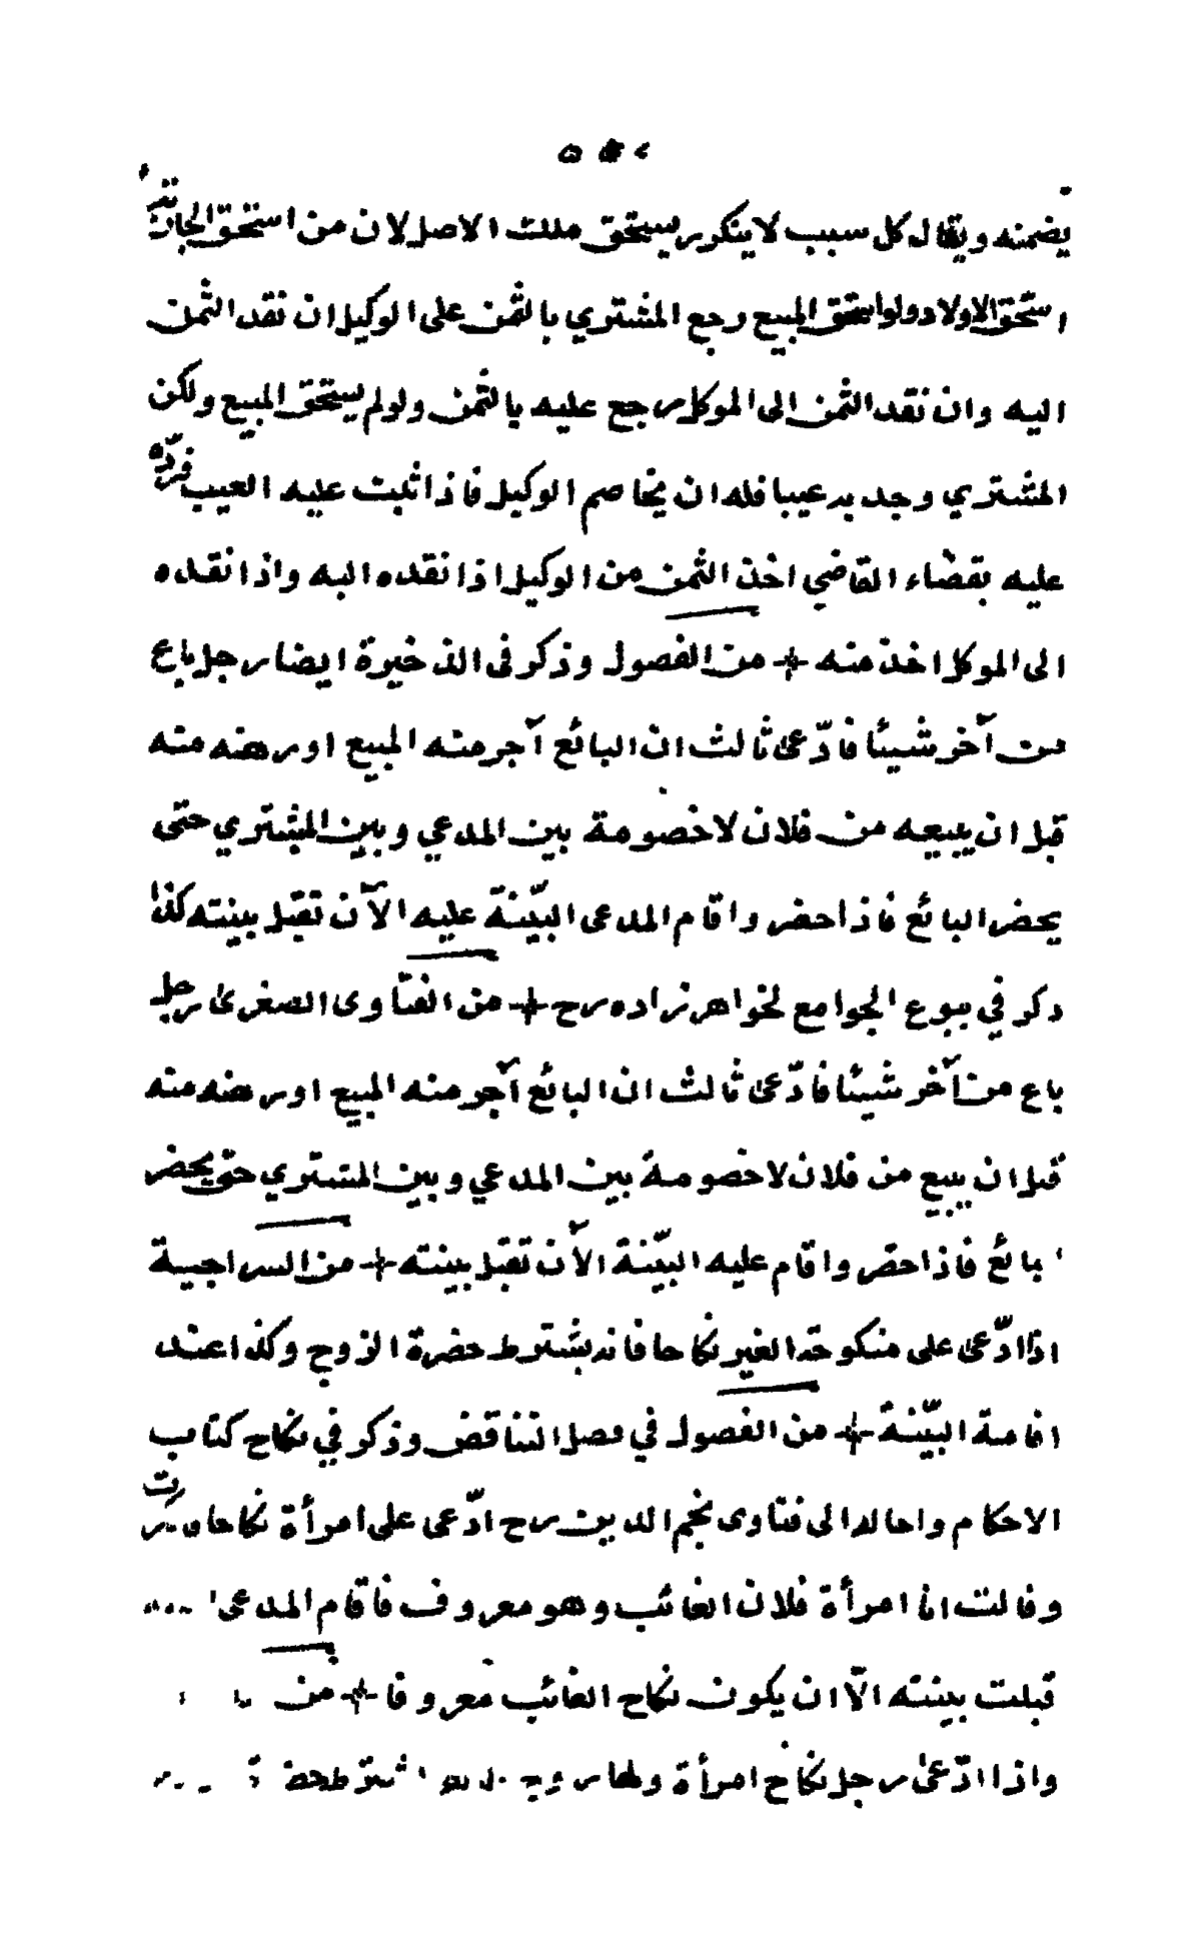 يضمنه ويقال كل سبب لا ينكر يستحق ملك الاصل لان من استحق الجارية
استحق الاولاد ولو استحق المبيع رجع المشتري بالثمن على الوكيل ان نقد الثمن
اليه وان نقد الثمن الى الموكل رجع عليه بالثمن ولو لم يستحق المبيع ولكن
المشتري وجد به عيبا فله ان يخاصم الوكيل فاذا ثبت عليه العيب فردّه
عليه بقضاء القاضي اخذ الثمن من الوكيل اذا نقده اليه واذا نقده
الى الموكل اخذ منه + من الفصول وذكر فى الذخيرة ايضا رجل باع
من آخر شيئا فادّعى ثالث ان البائع آجر منه المبيع او رهنه منه
قبل ان يبيعه من فلان لا خصومة بين المدعي وبين المشتري حتى
يحضر البائع فاذا حضر واقام المدعى البيّنة عليه الآن تقبل بينته كذا
ذكر في بيوع الجوامع لخواهر زاده رح + من الفتاوى الصغرى رجل
باع من آخر شيئا فادّعى ثالث ان البائع آجر منه المبيع او رهنه منه
قبل ان يبيع من فلان لا خصومة بين المدعي وبين المشتري حتى يحضر
البائع فاذا حضر واقام عليه البيّنة الآن تقبل بينته + من السراجية
اذا ادّعى على منكوحة الغير نكاحا فانه يشترط حضرة الزوج وكذا عند
اقامة البيّنة + من الفصول في فصل التناقض وذكر في نكاح كتاب
الاحكام واحاله الى فتاوى نجم الدين رح ادّعى على امرأة نكاحا
وقالت انا امرأة فلان الغائب وهو معروف فاقام المدعى
قبلت بينته الّا ان يكون نكاح الغائب معروفا + من
واذا ادّعى رجل نكاح امرأة ولها زوج